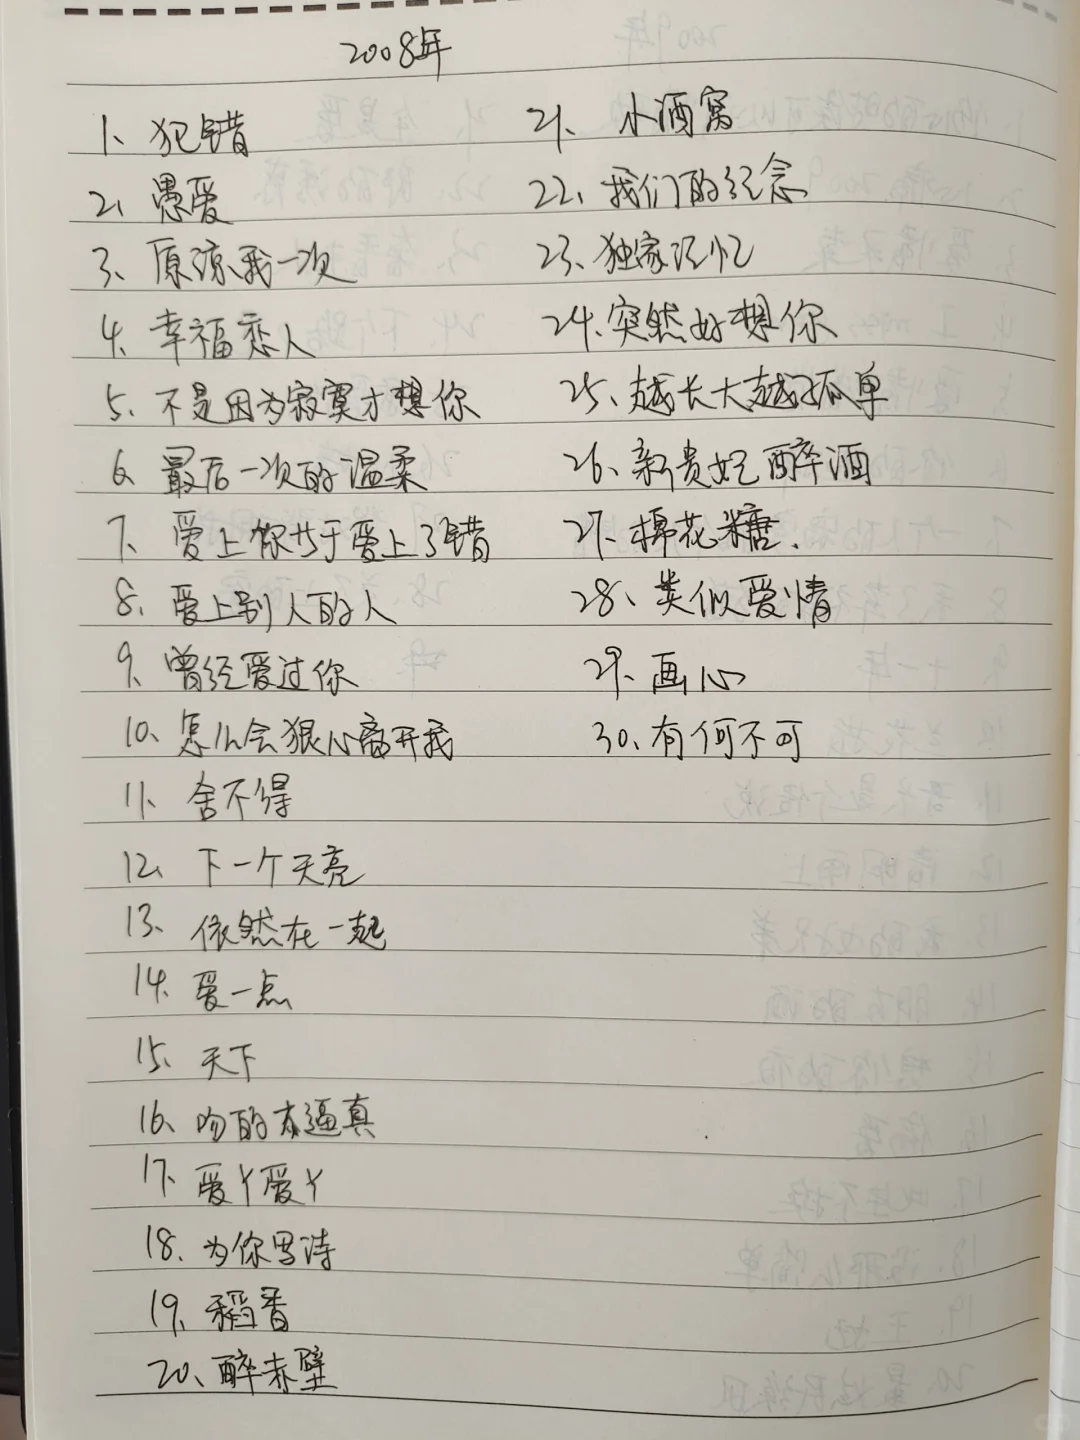 2008年
1、犯错
2、愚爱
3、原谅我一次
4、幸福恋人
5、不是因为寂寞才想你
6、最后一次的温柔
7、爱上你等于爱上了错
8、爱上别人的人
9、曾经爱过你
10、怎么会狠心离开我
11、舍不得
12、下一个天亮
13、依然在一起
14、爱一点
15、天下
16、吻的太逼真
17、爱丫爱丫
18、为你写诗
19、稻香
20、醉赤壁
21、小酒窝
22、我们的纪念
23、独家记忆
24、突然好想你
25、越长大越孤单
26、新贵妃醉酒
27、棉花糖.
28、类似爱情
29、画心
30、有何不可